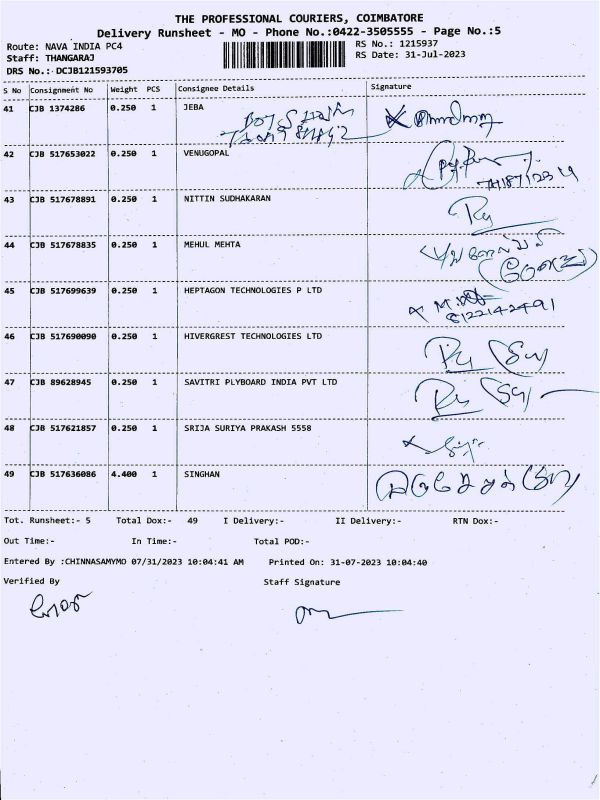 THE PROFESSIONAL COURIERS, COIMBATORE
Delivery Runsheet - MO - Phone No.:0422-3505555 - Page No.:5
Route: NAVA INDIA PC4
RS No.: 1215937
Staff: THANGARAJ
RS Date: 31-Jul-2023
DRS No.: DCJB121593705
S No Consignment No Weight PCS Consignee Details Signature
41 CJB 1374286 0.250 1 JEBA
42 CJB 517653022 0.250 1 VENUGOPAL
43 CJB 517678891 0.250 1 NITTIN SUDHAKARAN
44 CJB 517678835 0.250 1 MEHUL MEHTA
45 CJB 517699639 0.250 1 HEPTAGON TECHNOLOGIES P LTD
46 CJB 517690090 0.250 1 HIVERGREST TECHNOLOGIES LTD
47 CJB 89628945 0.250 1 SAVITRI PLYBOARD INDIA PVT LTD
48 CJB 517621857 0.250 1 SRIJA SURIYA PRAKASH 5558
49 CJB 517636086 4.400 1 SINGHAN
Tot. Runsheet:- 5 Total Dox:- 49 I Delivery:- II Delivery:- RTN Dox:-
Out Time:- In Time:- Total POD:-
Entered By :CHINNASAMYMO 07/31/2023 10:04:41 AM Printed On: 31-07-2023 10:04:40
Verified By Staff Signature